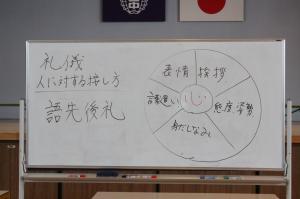 礼儀
人に対する接し方
語先後礼
表情
挨拶
言葉遣い
態度、姿勢
身だしなみ